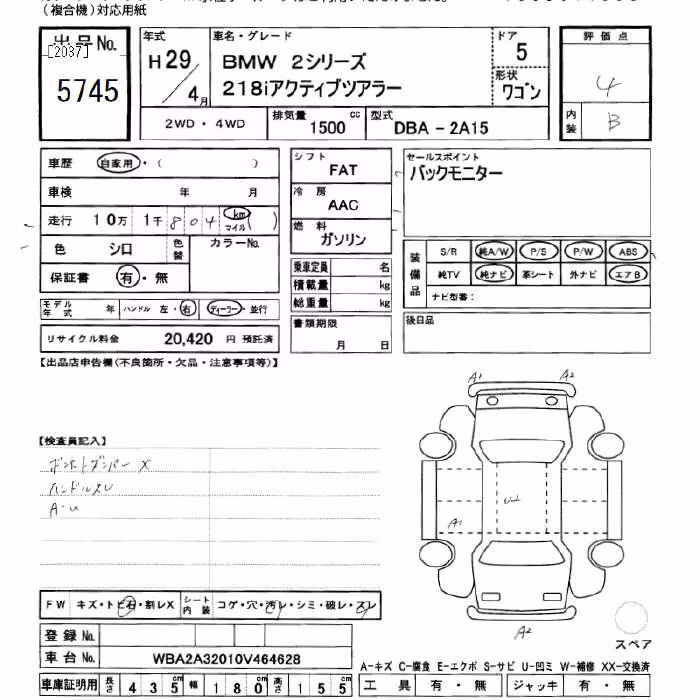 (複合機)対応用紙
出品No.
[2037]
5745
年式
H29/4月
車名・グレード
BMW 2シリーズ
218iアクティブツアラー
ドア
5
形状
ワゴン
評価点
4
内装
B
2WD・4WD
排気量
1500 cc
型式
DBA-2A15
車歴 自家用・( )
車検 年 月
走行 10万 1千 804 km マイル ( )
色 シロ 色替 カラーNo.
保証書 有・無
モデル年式 年 ハンドル 左・右 ディーラー・並行
リサイクル料金 20,420 円 預託済
シフト
FAT
冷房
AAC
燃料
ガソリン
乗車定員 名
積載量 kg
総重量 kg
書類期限
月 日
セールスポイント
バックモニター
装備品
S/R 純A/W P/S P/W ABS
純TV 純ナビ 革シート 外ナビ エアB
ナビ型番:
後日品
【出品店申告欄(不良箇所・欠品・注意事項等)】
【検査員記入】
ボンネットダンパーX
ハンドルスレ
A・U
A1 A2
U2
A1
A2
スペア
FW キズ・トビ石・割レX シート内装 コゲ・穴・汚レ・シミ・破レ・スレ
登録No.
車台No. WBA2A32010V464628
車庫証明用 長さ 435 幅 180 高さ 155
A-キズ C-腐食 E-エクボ S-サビ U-凹ミ W-補修 XX-交換済
工具 有・無 ジャッキ 有・無